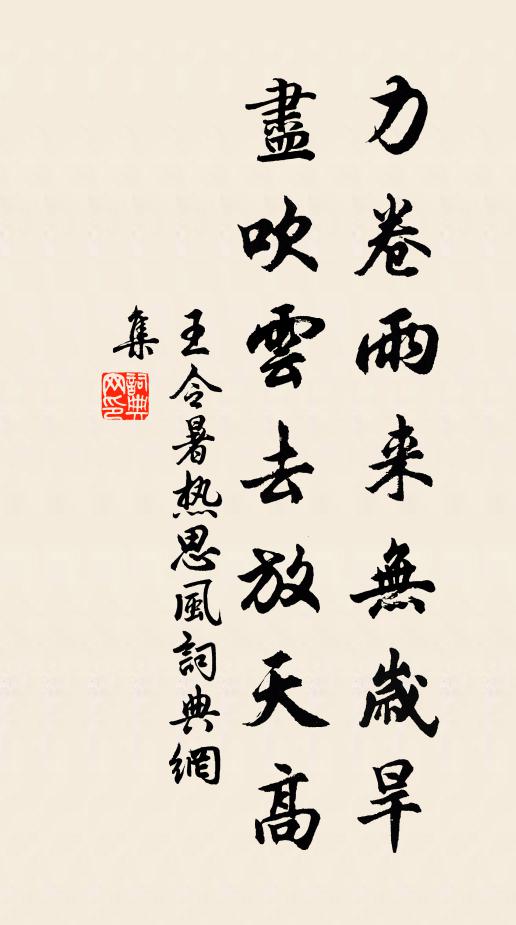 力卷雨来無歲旱
盡吹雲去放天高
王令暑热思風詞典網
集
詞典
网印